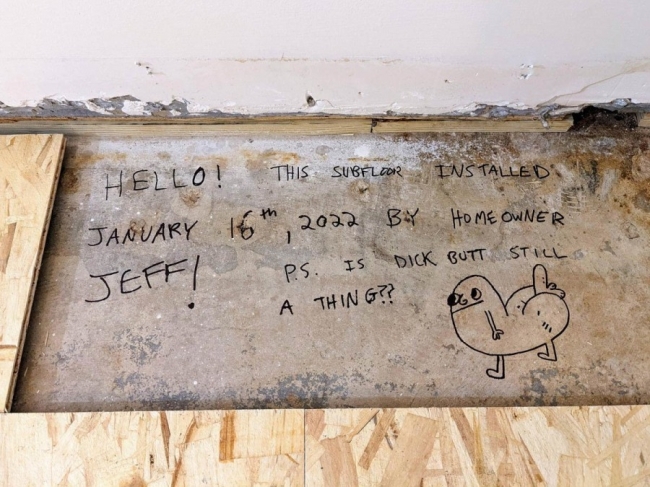 HELLO! THIS SUBFLOOR INSTALLED
JANUARY 16th, 2022 BY HOMEOWNER
JEFF! P.S. IS DICK BUTT STILL
A THING??